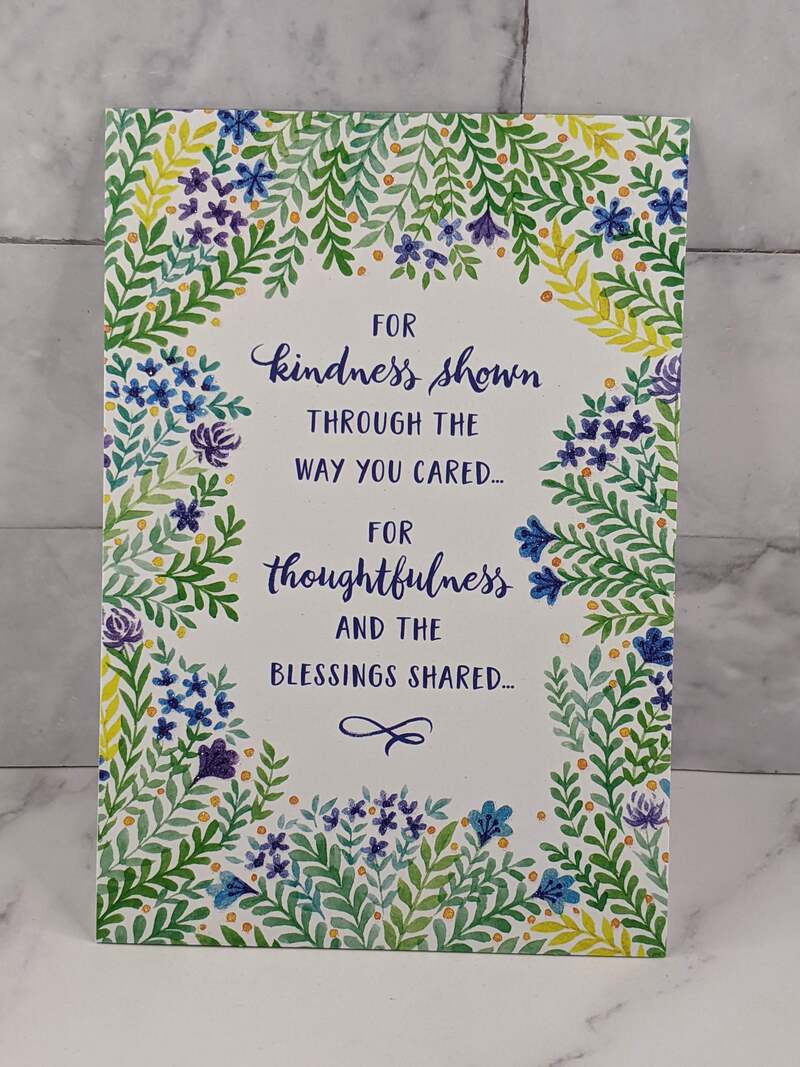 FOR
kindness shown
THROUGH THE
WAY YOU CARED...
FOR
thoughtfulness
AND THE
BLESSINGS SHARED...